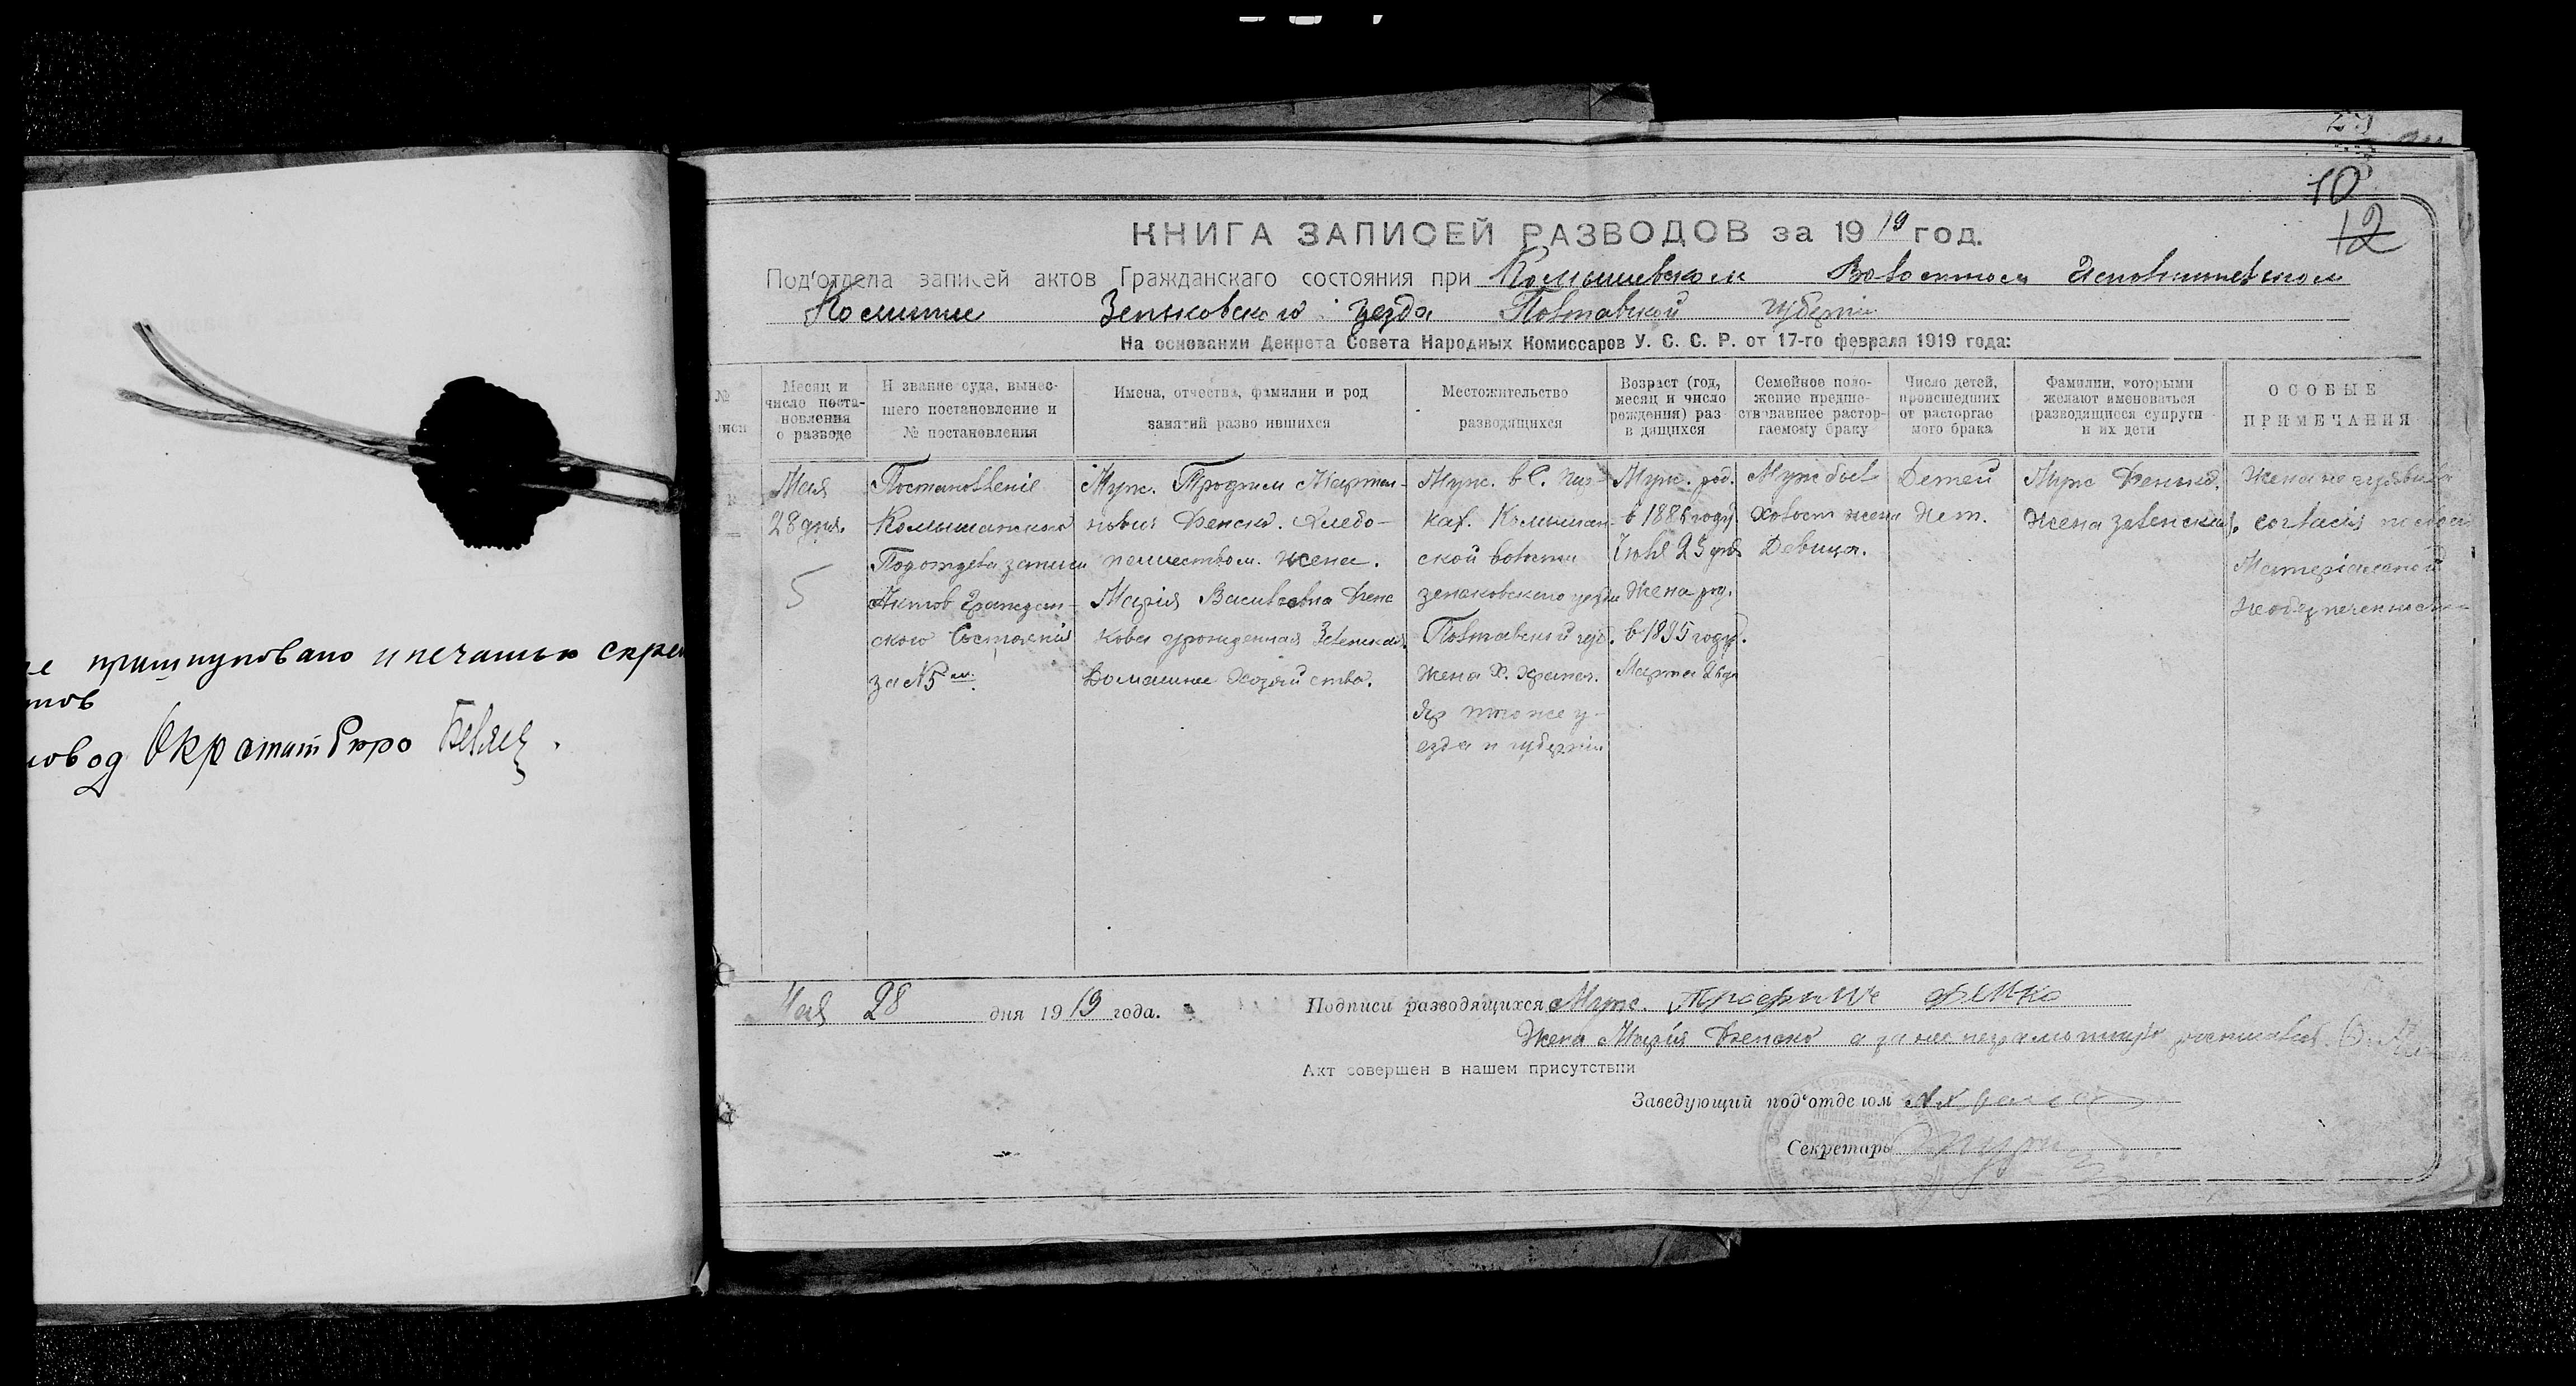 пришнуровано и печатью скре
тов
овод Окрстатбюро
10
12
КНИГА ЗАПИСЕЙ РАЗВОДОВ за 1919 год.
Под'отдела записей актов Гражданскаго состояния при Комышевском Волостном Исполнительном
Комитте Зеньковского уезда Полтавской губернии
На основании Декрета Совета Народных Комиссаров У. С. С. Р. от 17-го февраля 1919 года:
№
Месяц и число поста-новления о разводе
И звание суда, вынес-шего постановление и № постановления
Имена, отчества, фамилии и род занятий разво ившихся
Местожительство разводящихся
Возраст (год, месяц и число рождения) раз в дящихся
Семейное поло-жение предше-ствовавшее растор-гаемому браку
Число детей, происшедших от расторгае мого брака
Фамилии, которыми желают именоваться (разводящиеся супруги и их дети
ОСОБЫЕ ПРИМЕЧАНИЯ
Мая
28 дня.
5
Постановленіе
Комышанского
Подотдела записи
Актов Граждан-
ского Состоянія
за №5 м.
Муж. Трофим Марты-
нович Фенько. Хлебо-
пашеством. Жена.
Марія Васильевна Фень
кова урожденная Зеленская
Домашнее Хозяйство.
Муж. в С.
Комышан-
ской волости
зеньковского уезда
Полтавской губ.
Жена Х.
Яр того же у-
езда и губерніи
Муж. род.
в 1886 году
Іюля 23 дня
Жена род.
в 1895 году.
Марта
Муж был
Холост жена
Девица.
Детей
Нет.
Муж Фенько.
Жена Зеленская.
Жена не
согласія
Матеріальной
Необезпеченности
Мая 28 дня 1919 года.
Подписи разводящихся Муж.
Жена Марія Фенько а за нее неграмотную росписался
Акт совершен в нашем присутствии
Заведующий под'отделом
Секретарь